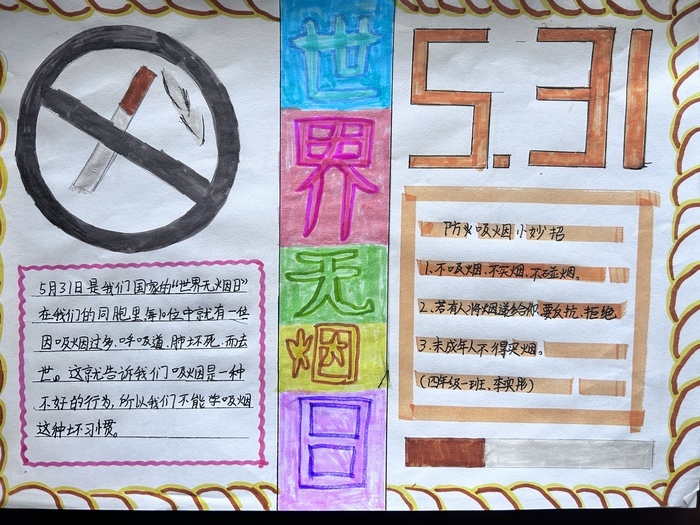 世界无烟日
5.31
5月31日是我们国家的“世界无烟日”
在我们的同胞里,每10位中就有一位
因吸烟过多.呼吸道.肺坏死.而去
世。这就告诉我们吸烟是一种
不好的行为,所以我们不能学吸烟
这种坏习惯。
防火吸烟小妙招
1.不吸烟.不买烟.不碰烟。
2.若有人将烟递给你要反抗.拒绝.
3.未成年人不得买烟。
(四年级一班.李